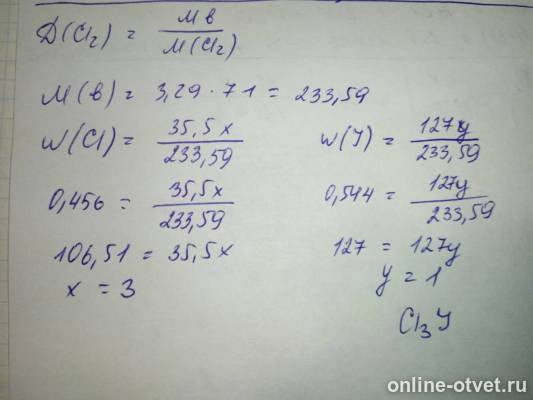 D(Cl₂) = Mв / M(Cl₂)
M(в) = 3,29 · 71 = 233,59
w(Cl) = 35,5x / 233,59
w(J) = 127y / 233,59
0,456 = 35,5x / 233,59
0,544 = 127y / 233,59
106,51 = 35,5x
127 = 127y
x = 3
y = 1
Cl₃J
online-otvet.ru